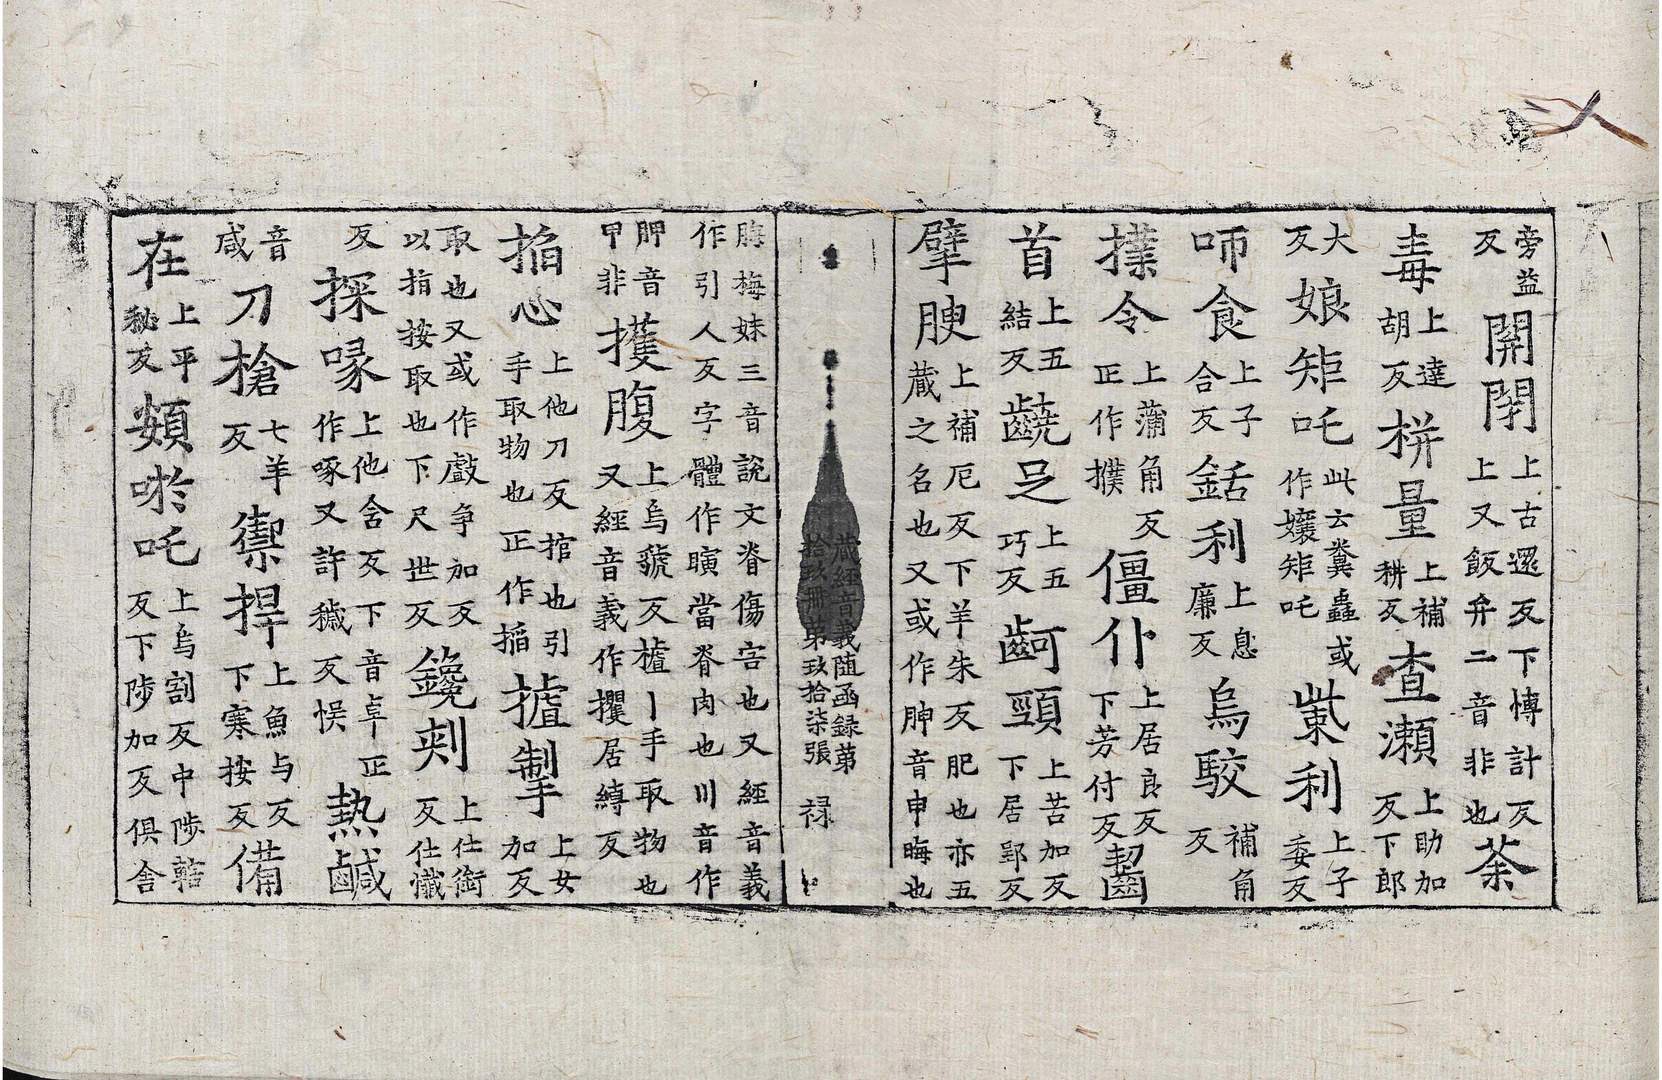 旁益反開閇上古還反下愽計反上又飯弁二音非也荼
毒上達胡反枡量上補耕反査瀬上助加反下郎
大反娘矩吒此云糞蟲或作孃矩吒㭰利上子委反
咂食上子合反銛利上息廉反烏駮補角反
擈令上蒲角反正作撲僵仆上居良反下芳付反齧
首上五結反齩足上五巧反齣頸上苦加反下居郢反
擘腴上補厄反下羊朱反肥也亦五藏之名也又或作胂音申晦也
藏經音義随函録第拾玖冊第玖拾柒張 禄
脢梅妹三音說文脊傷害也又經音義作引人反字體作䐜當脊肉也川音作
胛音甲非擭腹上烏虢反樝丨手取物也又經音義作攫居縛反
搯心上他刀反棺也引手取物也正作搯摣掣上女加反
取也又或作戲争加反以指按取也下尺世反鑱刾上仕銜反仕懺
反探喙上他舍反下音卓正作啄又許穢反悮熱鹹
音咸刀槍七羊反禦捍上魚与反下寒按反備
在上平秘反頞唹吒上烏割反中陟轄反下陟加反俱舍